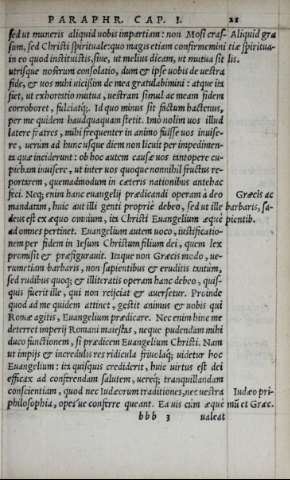 PARAPHR. CAP. I. 21
sed ut muneris aliquid uobis impartiam: non Mosi cras- Aliquid gra
sum, sed Christi spirituale: quo magis etiam confirmemini tiæ spiritua-
in eo quod instituistis, siue, ut melius dicam, ut mutua sit lis.
utrisque nostrum consolatio, dum & ipse uobis de uestra
fide, & uos mihi uicissim de mea gratulabimini: atque ita
fiet, ut exhortatio mutua, uestram simul ac meam fidem
corroboret, fulciatq́;. Id quo minus sit factum hactenus,
per me quidem haudquaquam stetit. Imò nolim uos illud
latere fratres, mihi frequenter in animo fuisse uos inuise-
re, uerum ad hunc usque diem non licuit per impedimen-
ta quæ inciderunt: ob hoc autem causæ uos tantopere cu-
piebam inuisere, ut inter uos quoque nonnihil fructus re-
portarem, quemadmodum in cæteris nationibus antehac
feci. Neq; enim hanc euangelij prædicandi operam à deo Græcis ac
mandatam, huic aut illi genti propriè debeo, sed ut ille barbaris, sa-
deus est ex æquo omnium, ita Christi Euangelium æquè pientib.
ad omnes pertinet. Euangelium autem uoco, iustificatio-
nem per fidem in Iesum Christum filium dei, quem lex
promisit & præfigurauit. Itaque non Græcis modo, ue-
rumetiam barbaris, non sapientibus & eruditis tantum,
sed rudibus quoq; & illiteratis operam hanc debeo, quis-
quis fuerit ille, qui non reijciat & auersetur. Proinde
quod ad me quidem attinet, gestit animus & uobis qui
Romæ agitis, Euangelium prædicare. Nec enim hinc me
deterret imperij Romani maiestas, neque pudendam mihi
duco functionem, si prædicem Euangelium Christi. Nam
ut impijs & incredulis res ridicula friuolaq́; uidetur hoc
Euangelium: ita quisquis crediderit, huic uirtus est dei
efficax ad conferendam salutem, uereq́; tranquillandam
conscientiam, quod nec Iudæorum traditiones, nec uestra Iudæo pri-
philosophia, opesue conferre queant. Ea uis cùm æquè mũ et Græc.
bbb 3 ualeat